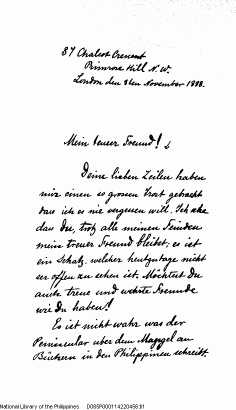 37 Chalcot Crescent
Primrose Hill N. W.
London den 8ten November 1888.
Mein teurer Freund!
Deine lieben Zeilen haben
mir einen so grossen Trost gebracht
dass ich es nie vergessen will. Ich sehe
das du, trotz alle meinen Feinden
mein treuer Freund bleibst; es ist
ein Schatz, welcher heutzutage nicht
so offen zu sehen ist. Möchtest du
auch treue und wahre Freunde
wie du haben!
Es ist nicht wahr was der
Peninsular über dem Mangel an
Büchern in den Philippinen schreibt.
National Library of the Philippines